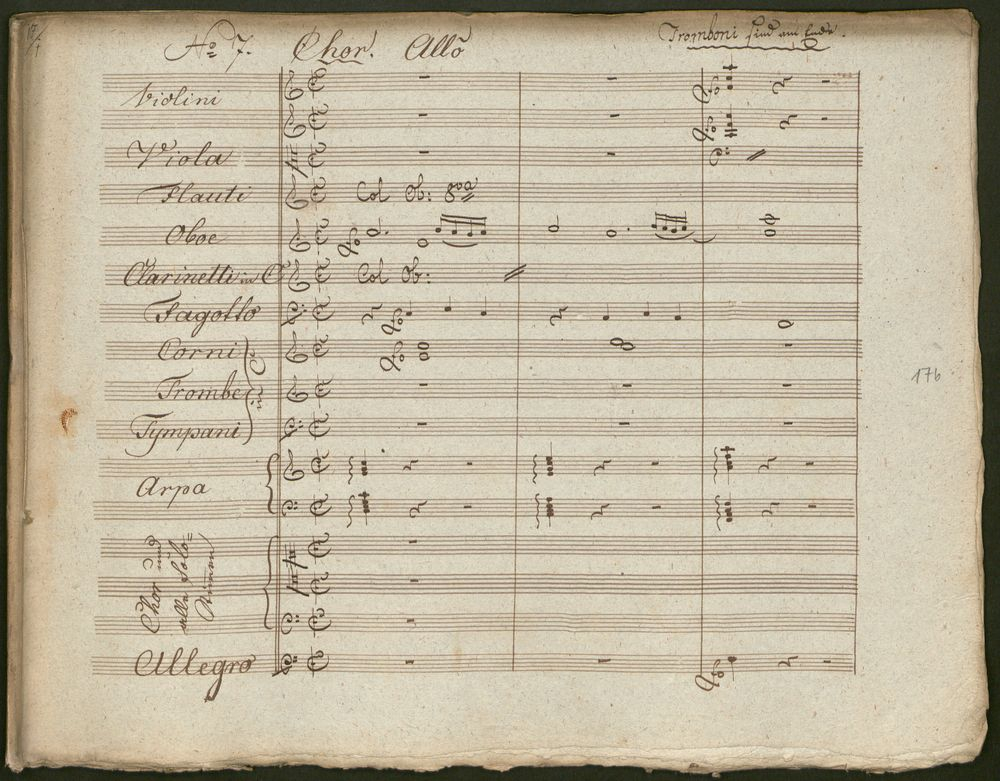 No 7. Chor. Allo
Tromboni sind am Ende.
Violini
Viola
Flauti Col Ob: 8va
Oboe
Clarinetti in C Col Ob:
Fagotto
Corni
Trombe
Tympani
Arpa
Chor und
alle Solo=
Stimmen
Allegro
176